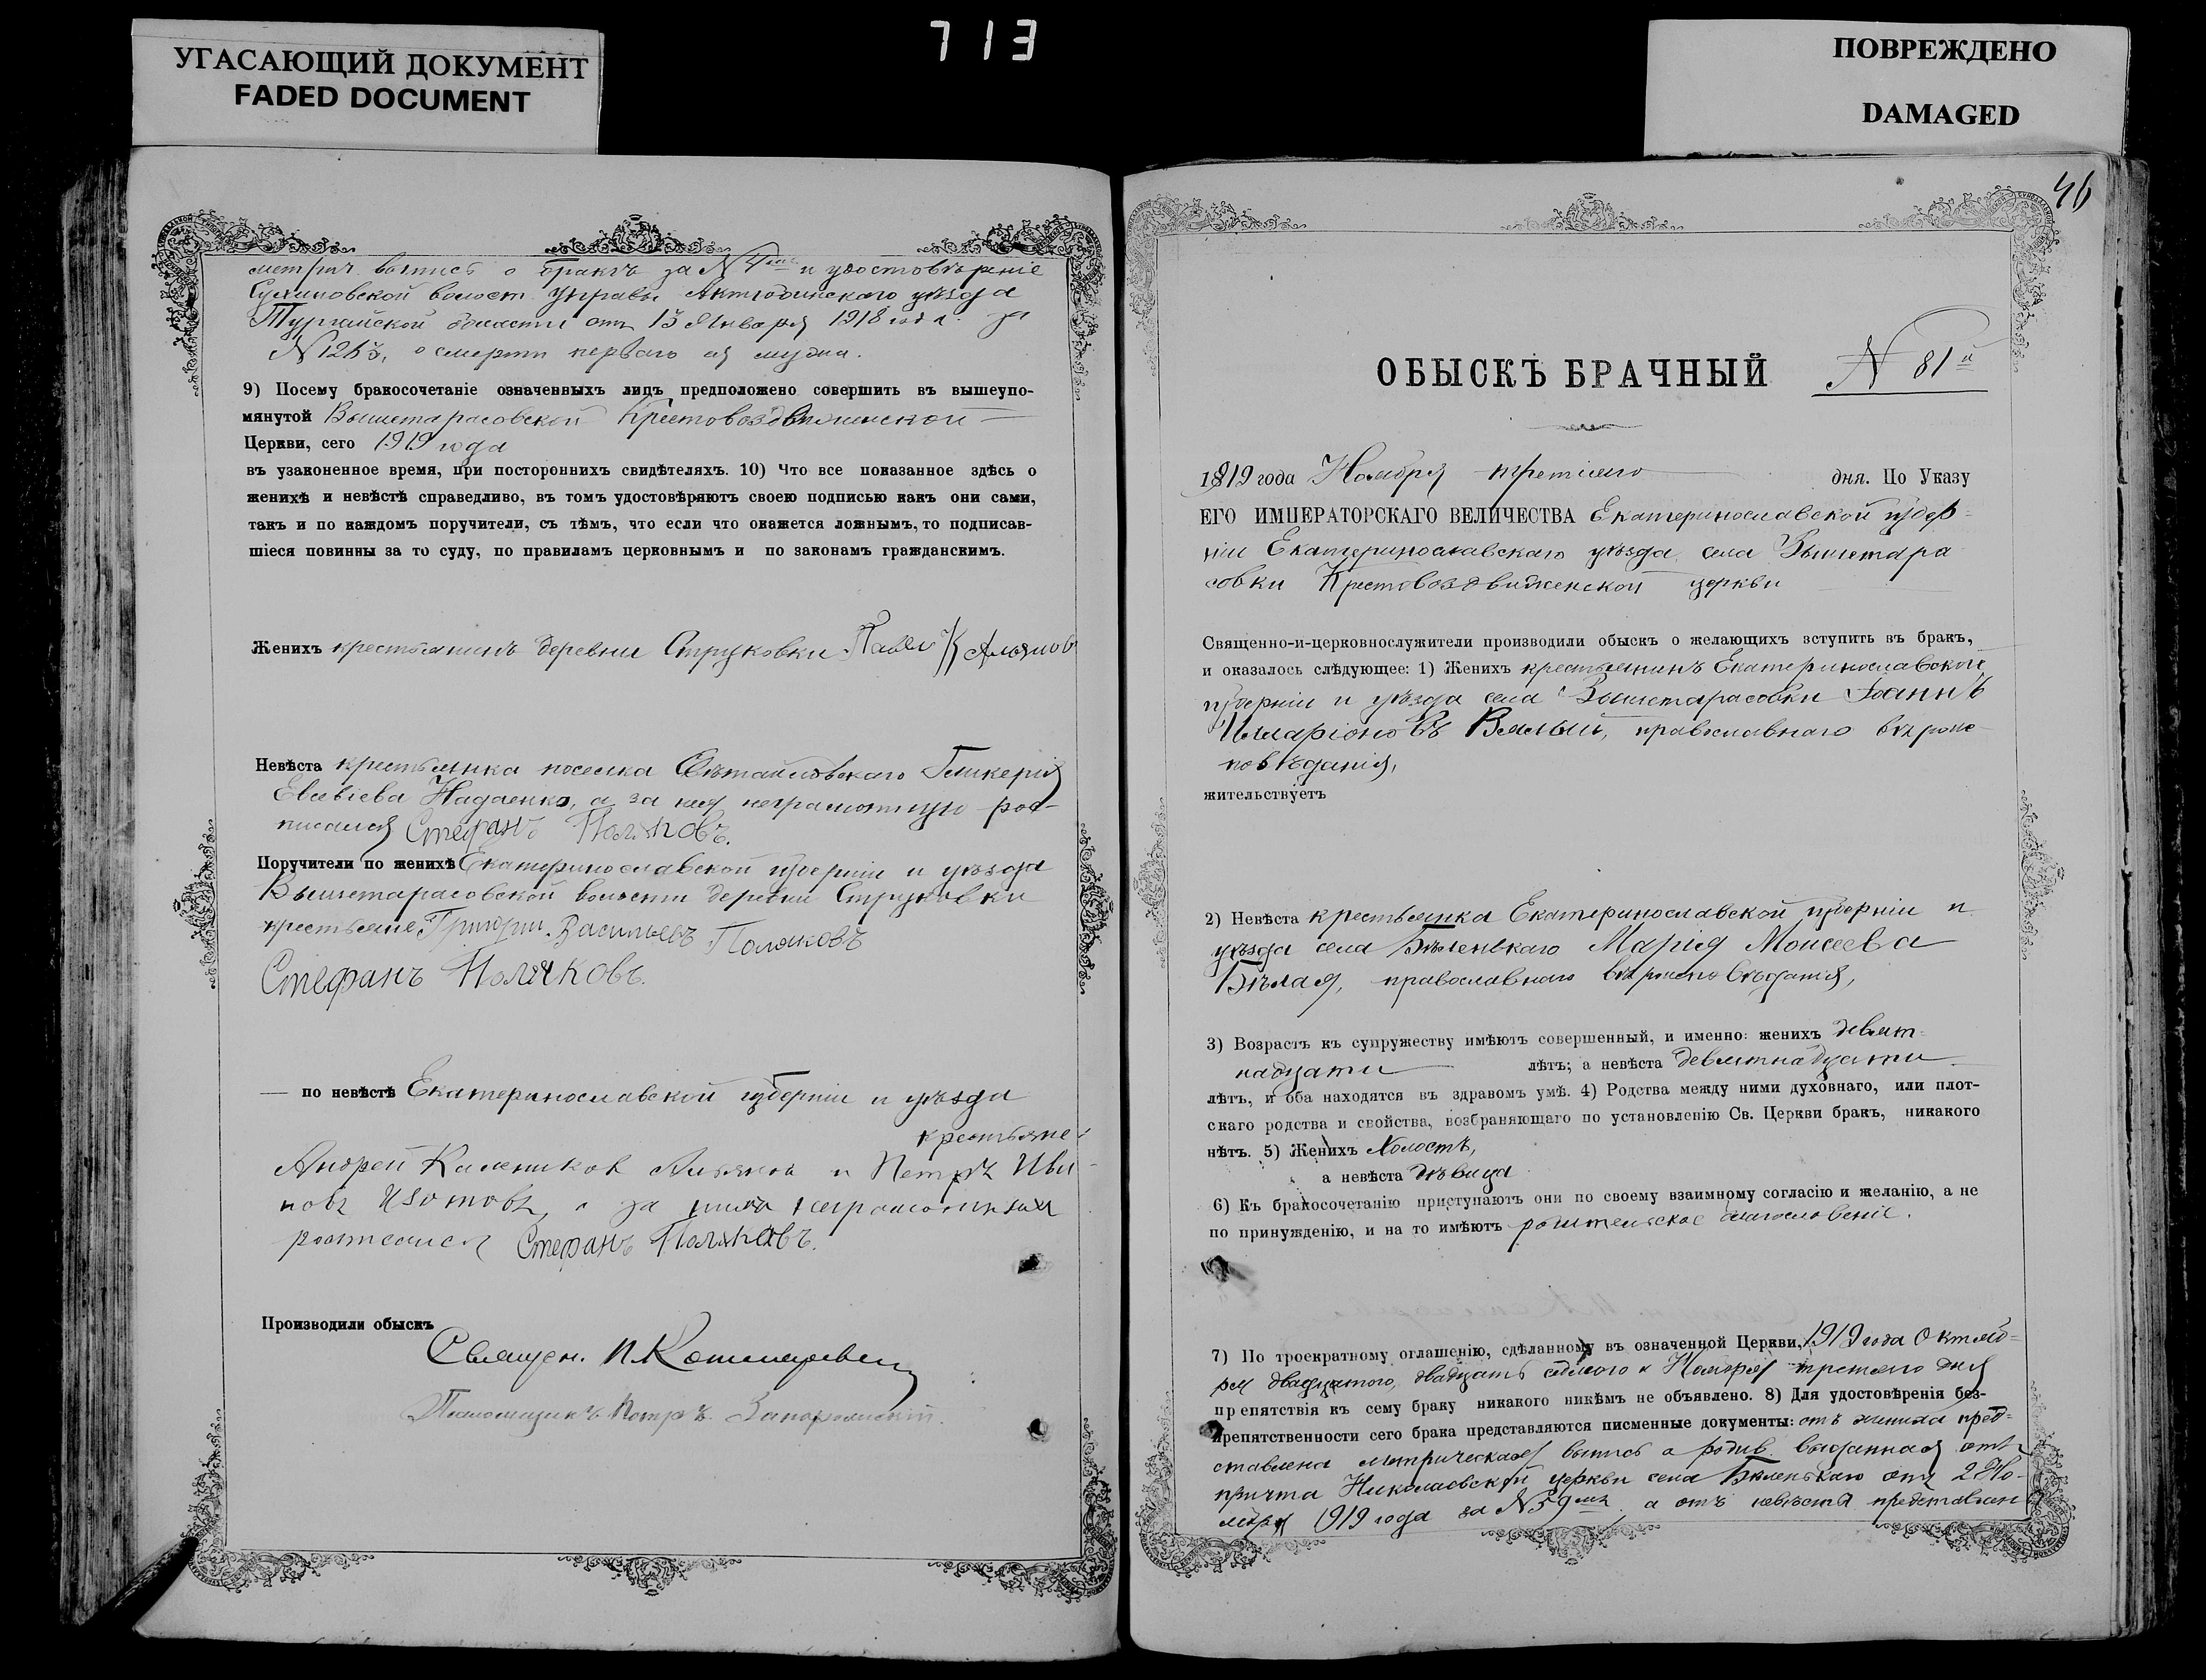 УГАСАЮЩИЙ ДОКУМЕНТ
FADED DOCUMENT
713
ПОВРЕЖДЕНО
DAMAGED
метрич. выпись о бракѣ за № и удостовѣреніе
волост. Управы Актюбинскаго уѣзда
Тургайской области отъ 15 Января 1918 года за
№ о смерти перваго ея мужа.
9) Посему бракосочетаніе означенныхъ лицъ предположено совершить въ вышеупо-
мянутой Вышетарасовской Крестовоздвиженской
Церкви, сего 1919 года
въ узаконенное время, при постороннихъ свидѣтеляхъ. 10) Что все показанное здѣсь о
женихѣ и невѣстѣ справедливо, въ томъ удостовѣряютъ своею подписью какъ они сами,
такъ и по каждомъ поручители, съ тѣмъ, что если что окажется ложнымъ, то подписав-
шіеся повинны за то суду, по правиламъ церковнымъ и по законамъ гражданскимъ.
Женихъ крестьянинъ деревни Струковки Павел
Невѣста крестьянка поселка Гликерія
Евсевіева Надаенко, а за нея неграмотную рос-
писался Стефанъ Поляковъ.
Поручители по женихѣ Екатеринославской губерніи и уѣзда
Вышетарасовской волости деревни Струковки
крестьяне Григорій Васильевъ Поляковъ
Стефанъ Поляковъ.
— по невѣстѣ Екатеринославской губерніи и уѣзда
крестьяне:
Андрей и Петръ Ива-
новъ Изотовъ, а за нихъ неграмотныхъ
росписался Стефанъ Поляковъ.
Производили обыскъ
Священ. П.
Псаломщикъ Петръ
46
ОБЫСКЪ БРАЧНЫЙ № 81й
1919 года Ноября третьяго дня. По Указу
ЕГО ИМПЕРАТОРСКАГО ВЕЛИЧЕСТВА Екатеринославской губер-
ніи Екатеринославскаго уѣзда села Вышетара
совки Крестовоздвиженской церкви
Священно-и-церковнослужители производили обыскъ о желающихъ вступить въ бракъ,
и оказалось слѣдующее: 1) Женихъ крестьянинъ Екатеринославской
губерніи и уѣзда села Вышетарасовки Іоаннъ
Илларіоновъ Вялый, православнаго вѣроис-
повѣданія,
жительствуетъ
2) Невѣста крестьянка Екатеринославской губерніи и
уѣзда села Бѣленькаго Марія Моисеева
Бѣлая, православнаго вѣроисповѣданія,
3) Возрастъ къ супружеству имѣютъ совершенный, и именно: женихъ девят-
надцати лѣтъ; а невѣста девятнадцати
лѣтъ, и оба находятся въ здравомъ умѣ. 4) Родства между ними духовнаго, или плот-
скаго родства и свойства, возбраняющаго по установленію Св. Церкви бракъ, никакого
нѣтъ. 5) Женихъ Холостъ,
а невѣста дѣвица
6) Къ бракосочетанію приступаютъ они по своему взаимному согласію и желанію, а не
по принужденію, и на то имѣютъ родительское благословеніе.
7) По троекратному оглашенію, сдѣланному въ означенной Церкви, 1919 года Октяб-
ря двадцатого, двадцать седьмого и Ноября третьяго дня
препятствія къ сему браку никакого никѣмъ не объявлено. 8) Для удостовѣренія без-
препятственности сего брака представляются писменные документы: отъ жениха пред-
ставлена метрическая выпись о рожд. выданная отъ
причта Николаевской церкви села Бѣленькаго отъ 2 Но-
ября 1919 года за № 59мъ а отъ невѣсты представлен